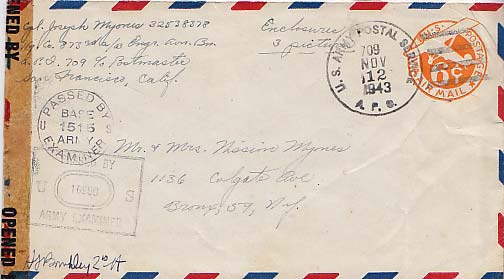 Cpl. Joseph Mynes 32538378
Hq Co. 873rd A/B Engr. Avn. Bn.
A.P.O. 709 c/o Postmaster
San Francisco, Calif.
Enclosure
3 pictures
U. S. ARMY POSTAL SERVICE
709
NOV
12
1943
A. P. S.
U.S. POSTAGE
6¢
AIR MAIL
PASSED BY
BASE
1515
ARMY
EXAMINER
U S
PASSED BY
U S
ARMY EXAMINER
Mr. & Mrs. Nissim Mynes
1136 Colgate Ave
Bronx, 59, N.Y.
2nd Lt
OPENED BY
OPENED